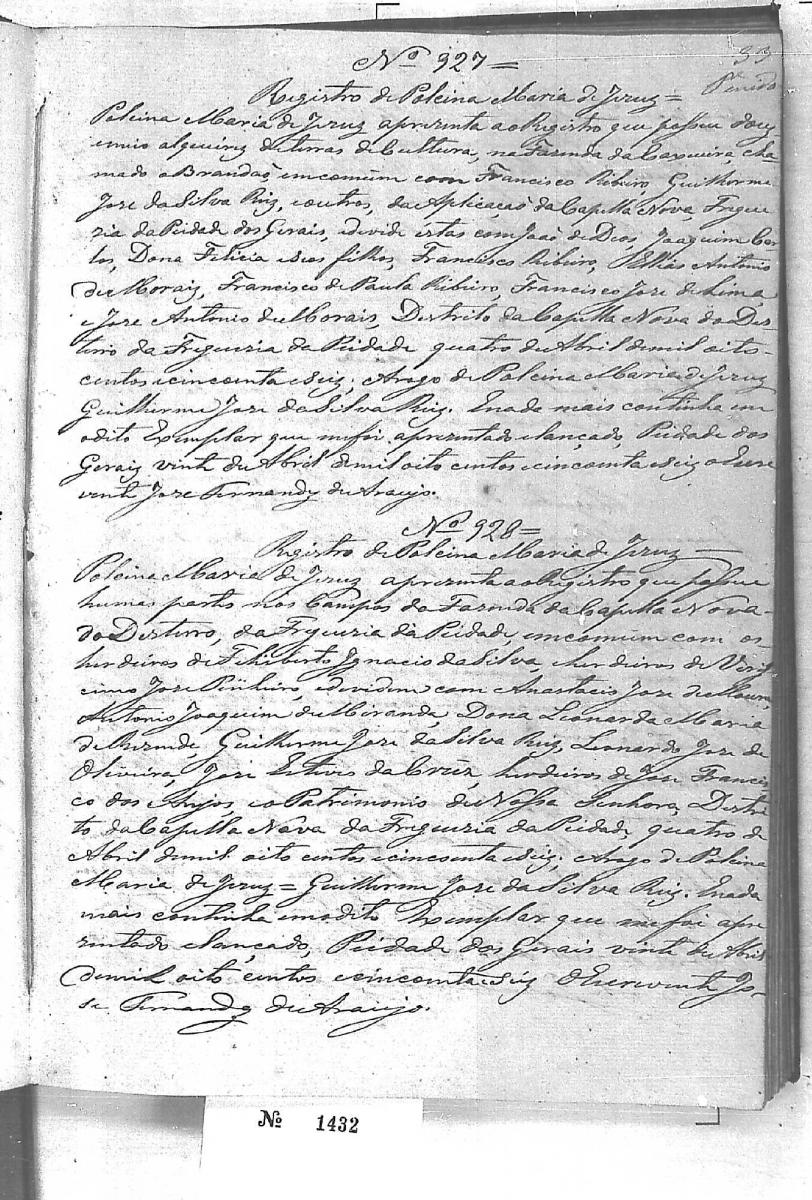 33
Nº 927 =
Registro de Polcina Maria de Jezuz =
Polcina Maria de Jezuz aprezenta ao Registro que possue douz
e meio alqueirez de terras de Cultura, na Fazenda da Caxueira cha
mado o Brandaõ em comum com Francisco Ribeiro, Guilherme
Joze da Silva Ruiz, e outros, da Aplicaçaõ da Capella Nova, Fregue
zia da Piedade dos Gerais, e devide estas com Joaõ de Deos, Joaquim
Dona Felicia e seos filhos, Francisco Ribeiro, Ellias Antonio
de Moraiz, Francisco de Paula Ribeiro, Francisco Joze de Lima,
e Joze Antonio de Morais, Destrito da Capella Nova do Des
terro da Freguezia da Piedade quatro de Abril de mil oito
centos e cincoenta e seiz; Arogo de Polcina Maria de Jezuz
Guilherme Joze da Silva Ruiz. Enada mais continha em
odito Exemplar que me foi aprezentado e lançado, Piedade dos
Geraiz vinte de Abril de mil oito centos e cincoenta e seiz o Escre
vente Joze Fernandz de Araujo.
Nº 928 =
Registro de Polcina Maria de Jezuz
Polcina Maria de Jezuz aprezenta ao Registro que possue
humas partes nos Campos da Fazenda da Capella Nova
do Desterro, da Freguezia da Piedade, em comum com os
herdeiros de Feliberto Ignacio da Silva, e herdeiros de Veris
cimo Joze Pinheiro, e devidem com Anastacio Joze de Moura,
Antonio Joaquim de Miranda, Dona Leonarda Maria
de Rezende, Guilherme Joze da Silva Ruiz, Leonardo Joze de
Oliveira, Joze Esteves da Crúz, herdeiros de Joze Francis
co dos Anjos e o Patrimonio de Nossa Senhora, Destri
to da Capella Nova da Freguezia da Piedade, quatro de
Abril de mil oito centos e cincoenta e seiz; Arogo de Polcina
Maria de Jezuz = Guilherme Joze da Silva Ruiz. Enada
mais continha em odito Exemplar que me foi apre
zentado e lançado, Piedade dos Gerais vinte de Abril
de mil oito centos e cincoenta e seiz O Escrevente Jo
ze Fernandz de Araujo.
Nº 1432